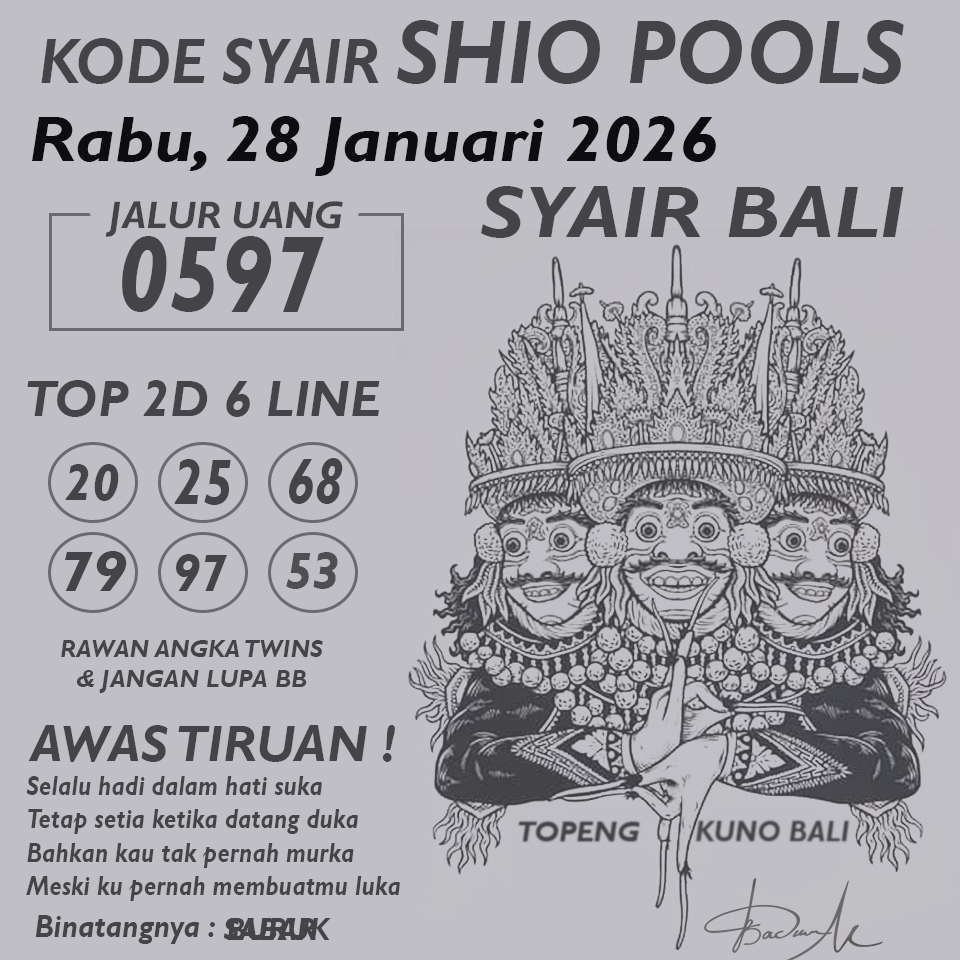 KODE SYAIR SHIO POOLS
Rabu, 28 Januari 2026
SYAIR BALI
JALUR UANG
0597
TOP 2D 6 LINE
20 25 68
79 97 53
RAWAN ANGKA TWINS
& JANGAN LUPA BB
AWAS TIRUAN !
Selalu hadi dalam hati suka
Tetap setia ketika datang duka
Bahkan kau tak pernah murka
Meski ku pernah membuatmu luka
Binatangnya :
TOPENG KUNO BALI